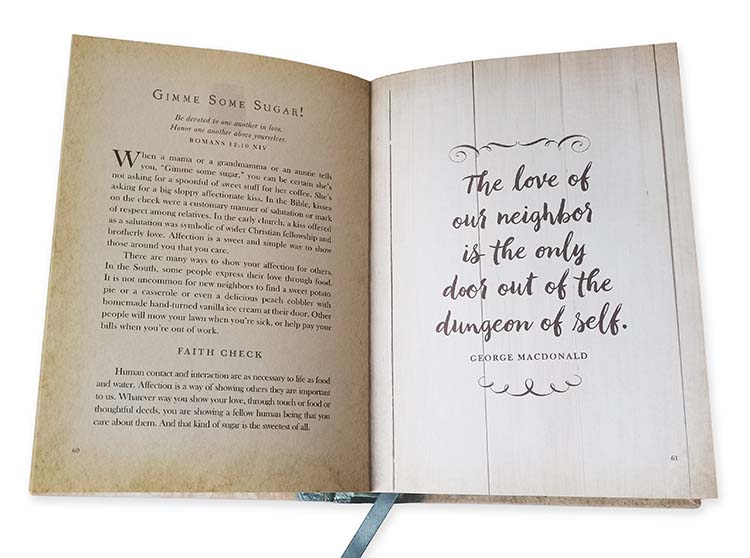 GIMME SOME SUGAR!
Be devoted to one another in love.
Honor one another above yourselves.
ROMANS 12:10 NIV
When a mama or a grandmamma or an auntie tells
you, "Gimme some sugar," you can be certain she's
not asking for a spoonful of sweet stuff for her coffee. She's
asking for a big sloppy affectionate kiss. In the Bible, kisses
on the cheek were a customary manner of salutation or mark
of respect among relatives. In the early church, a kiss offered
as a salutation was symbolic of wider Christian fellowship and
brotherly love. Affection is a sweet and simple way to show
those around you that you care.
There are many ways to show your affection for others.
In the South, some people express their love through food.
It is not uncommon for new neighbors to find a sweet potato
pie or a casserole or even a delicious peach cobbler with
homemade hand-turned vanilla ice cream at their door. Other
people will mow your lawn when you're sick, or help pay your
bills when you're out of work.
FAITH CHECK
Human contact and interaction are as necessary to life as food
and water. Affection is a way of showing others they are important
to us. Whatever way you show your love, through touch or food or
thoughtful deeds, you are showing a fellow human being that you
care about them. And that kind of sugar is the sweetest of all.
60
The love of
our neighbor
is the only
door out of the
dungeon of self.
GEORGE MACDONALD
61